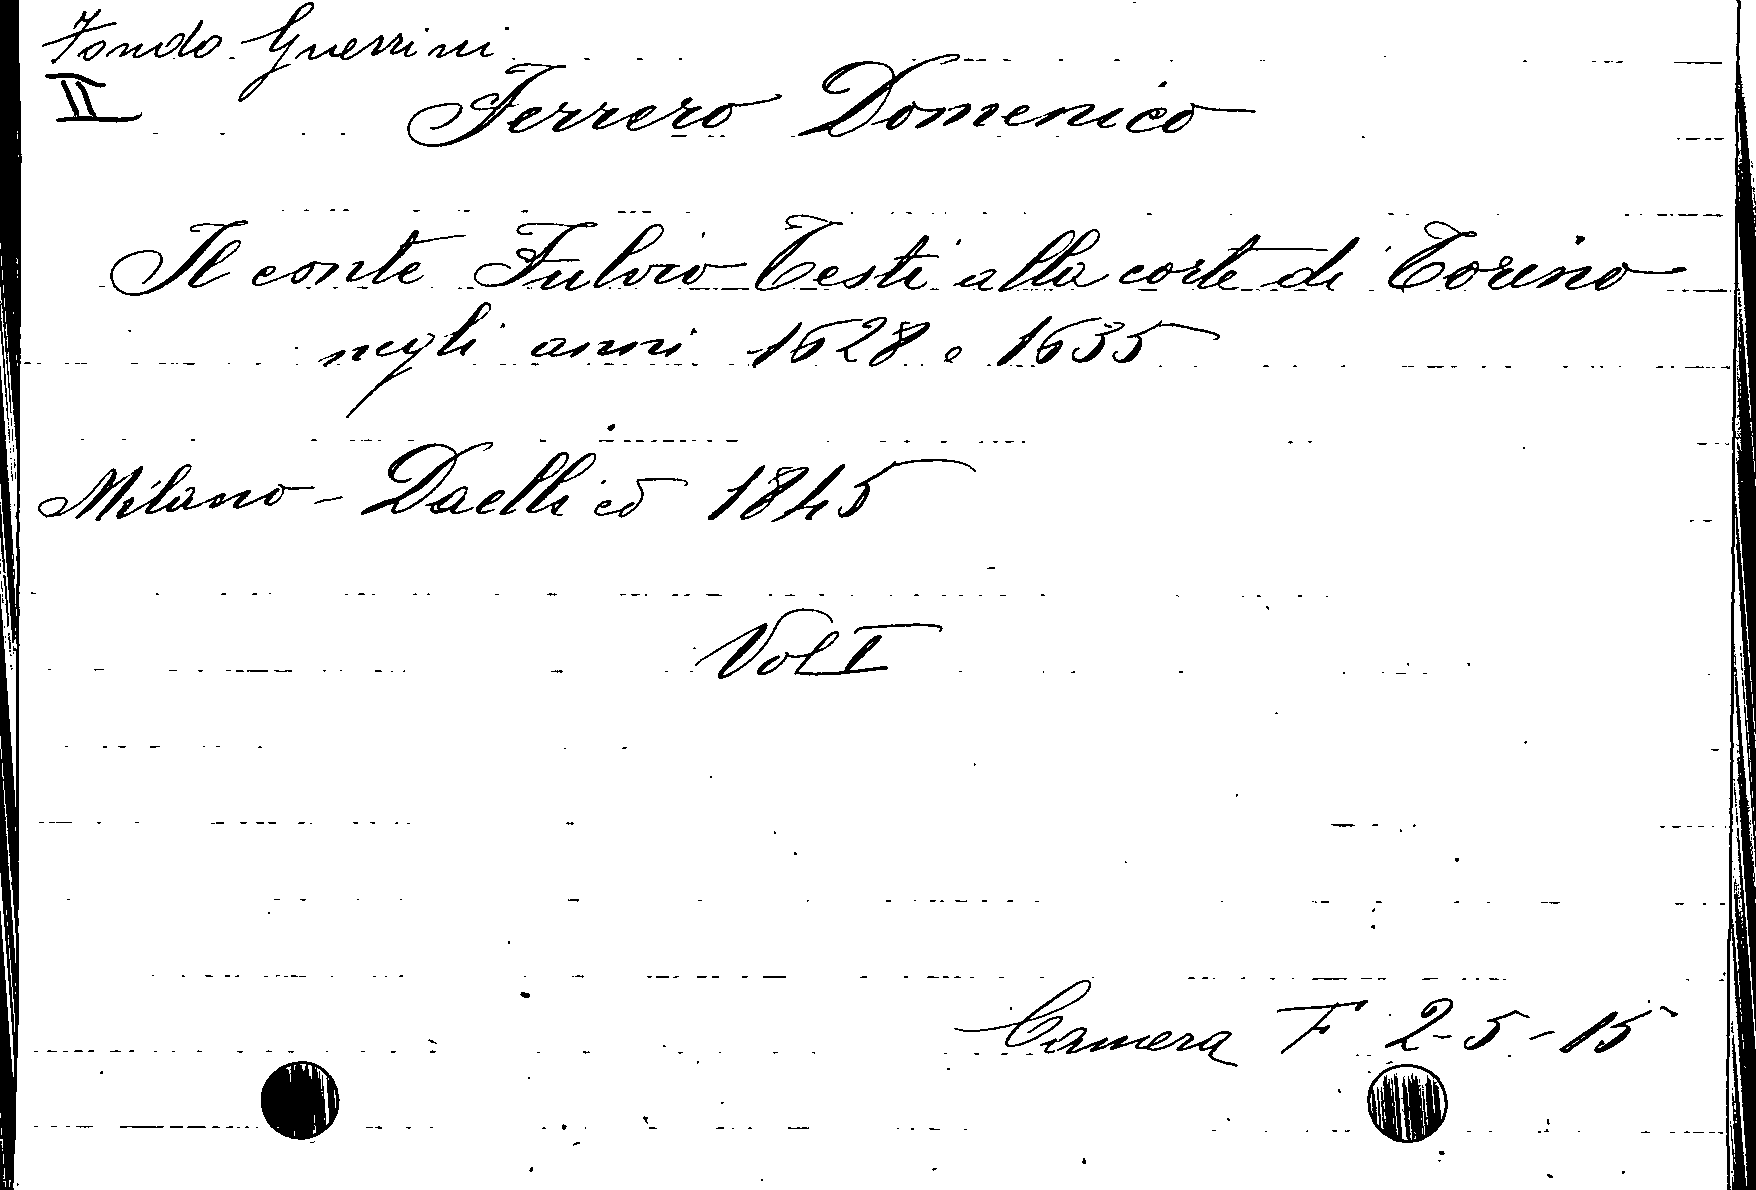 Fondo Guerrini
II
Ferrero Domenico
Il conte Fulvio Testi alla corte di Torino
negli anni 1628 e 1635
Milano - Daelli co 1845
Vol I
Camera F 2-5-15